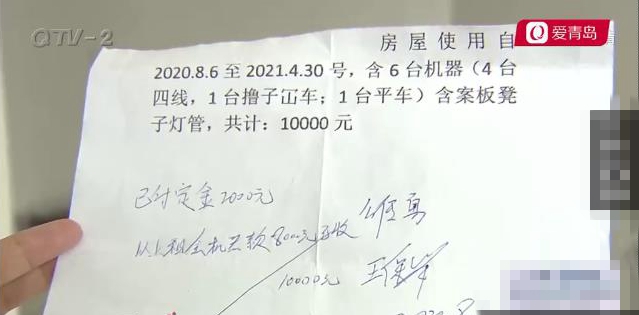 QTV-2
爱青岛
房屋使用自
2020.8.6 至 2021.4.30 号，含 6 台机器（4 台
四线，1 台撸子冚车；1 台平车）含案板凳
子灯管，共计：10000 元
已付定金2000元
以上租金机器款8000元
10000元